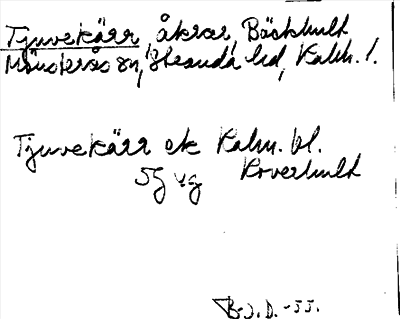 Tjuvekärr, åkrar, Bäckhult
Mönsterås sn, Stranda hd, Kalm. l.
Tjuvekärr ek Kalm. bl.
5G vg Kroverhult
B.J.D. -55.